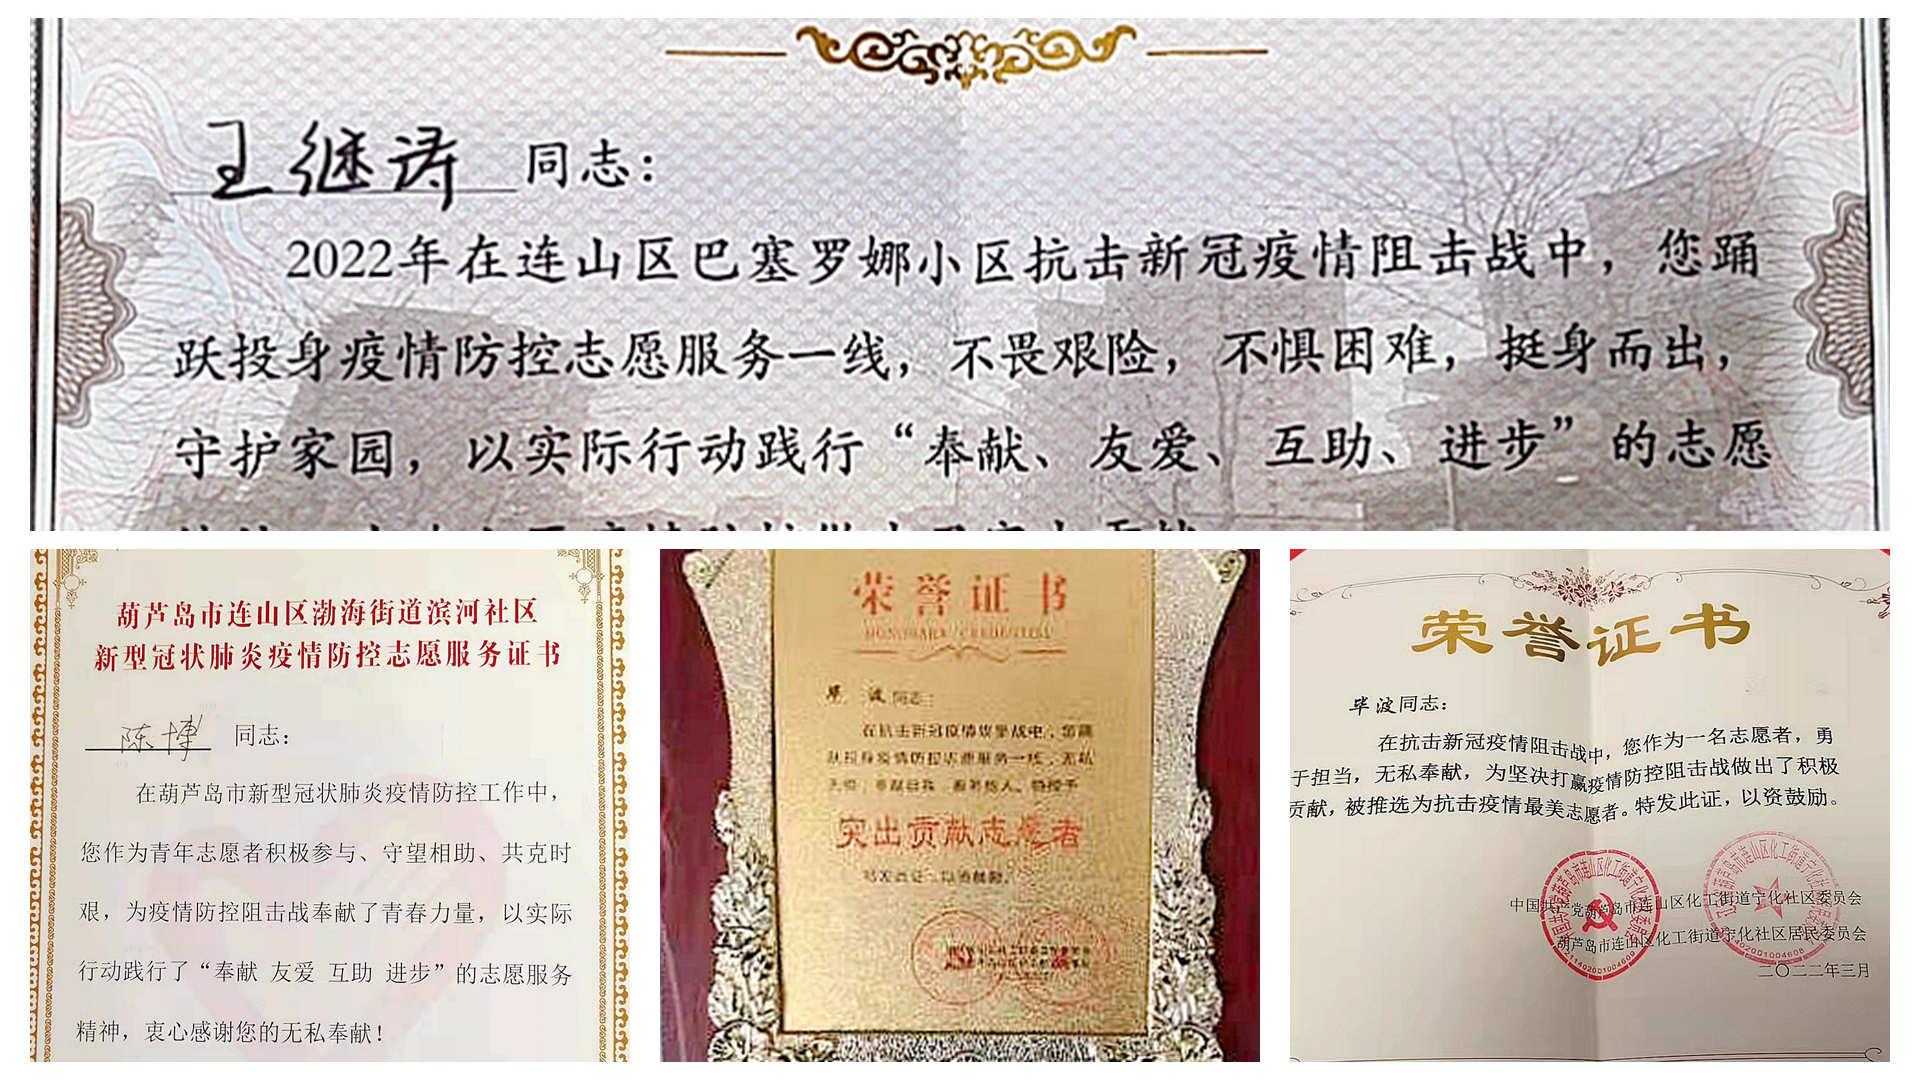 王继涛 同志：
2022年在连山区巴塞罗娜小区抗击新冠疫情阻击战中，您踊
跃投身疫情防控志愿服务一线，不畏艰险，不惧困难，挺身而出，
守护家园，以实际行动践行“奉献、友爱、互助、进步”的志愿
葫芦岛市连山区渤海街道滨河社区
新型冠状肺炎疫情防控志愿服务证书
陈博 同志：
在葫芦岛市新型冠状肺炎疫情防控工作中，
您作为青年志愿者积极参与、守望相助、共克时
艰，为疫情防控阻击战奉献了青春力量，以实际
行动践行了“奉献 友爱 互助 进步”的志愿服务
精神，衷心感谢您的无私奉献！
荣誉证书
HONORARY CREDENTIAL
毕 波 同志：
在抗击新冠疫情阻击战中，您踊
跃投身疫情防控志愿服务一线，无私
突出贡献志愿者
特发此证，以资鼓励。
荣誉证书
毕波同志：
在抗击新冠疫情阻击战中，您作为一名志愿者，勇
于担当，无私奉献，为坚决打赢疫情防控阻击战做出了积极
贡献，被推选为抗击疫情最美志愿者。特发此证，以资鼓励。
中国共产党葫芦岛市连山区化工街道宁化社区委员会
葫芦岛市连山区化工街道宁化社区居民委员会
二〇二二年三月